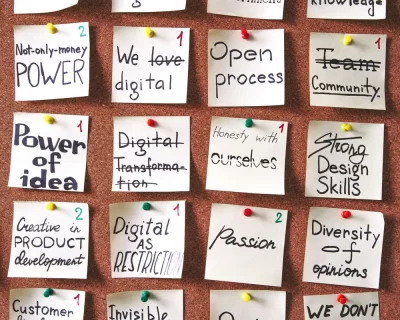 knowledge
2
Not-only-money
POWER
1
We love
digital
Open
process
1
Team
Community.
1
Power
of
idea
1
Digital
Transforma-
tion
1
Honesty with
ourselves
Strong
Design
Skills
2
Creative in
PRODUCT
development
1
Digital
AS
RESTRICTION
2
Passion
Diversity
of
opinions
1
Customer
Invisible
WE DON'T